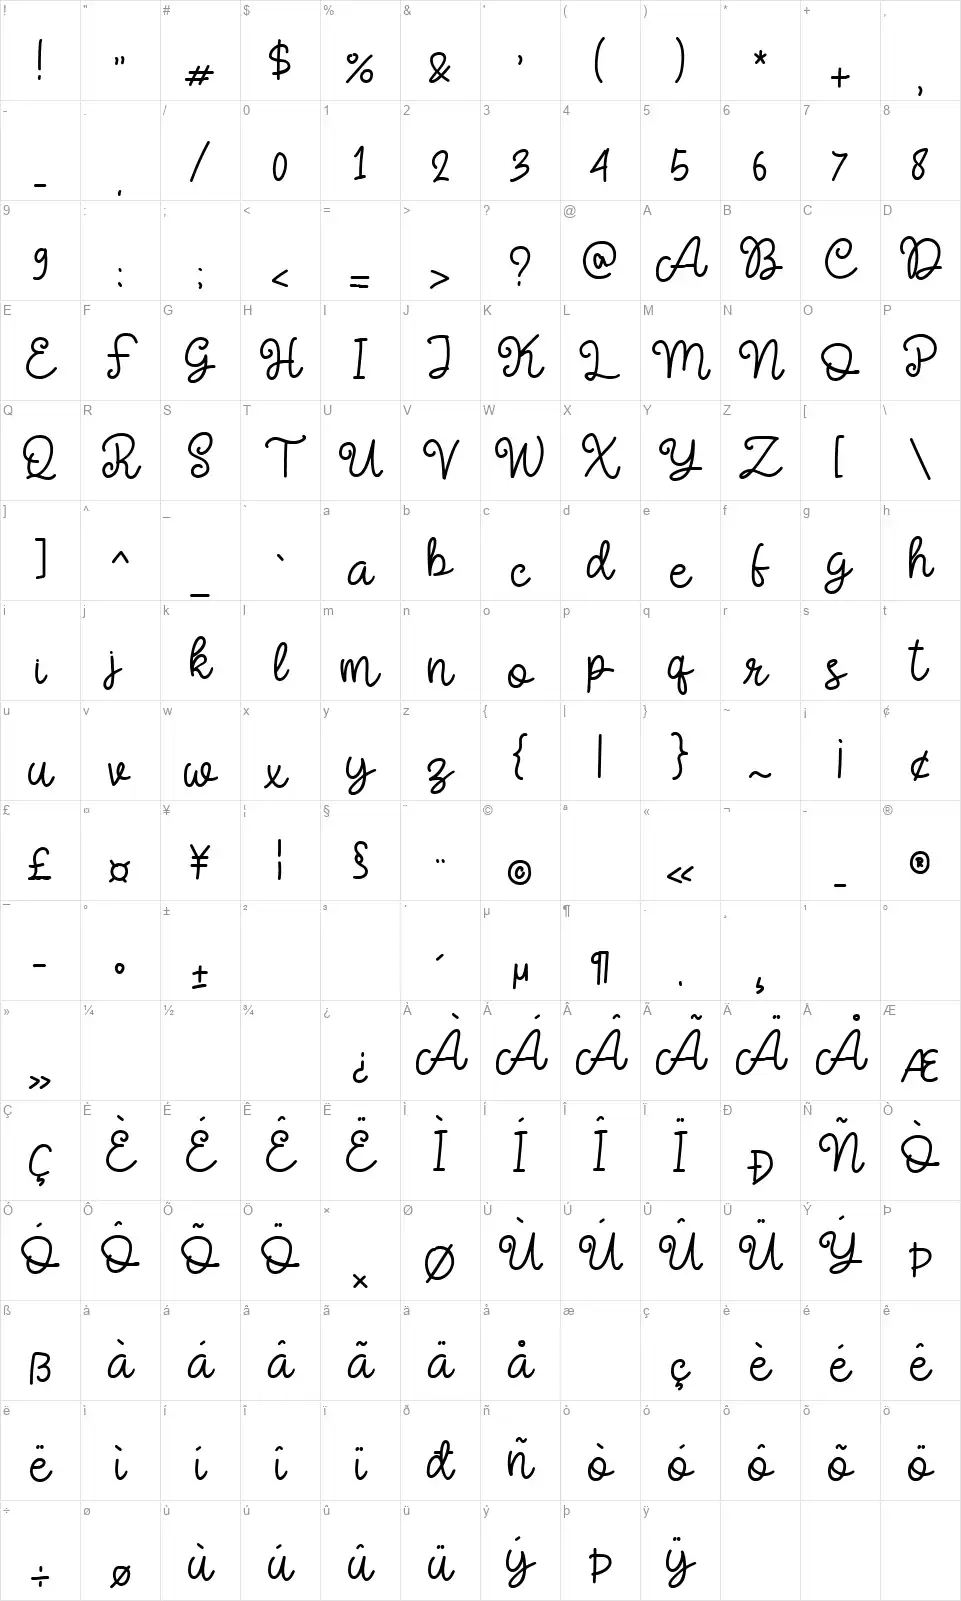 ! " # $ % & ' ( ) * + ,
! " # $ % & ' ( ) * + ,
- . / 0 1 2 3 4 5 6 7 8
- . / 0 1 2 3 4 5 6 7 8
9 : ; < = > ? @ A B C D
9 : ; < = > ? @ A B C D
E F G H I J K L M N O P
E F G H I J K L M N O P
Q R S T U V W X Y Z [ \
Q R S T U V W X Y Z [ \
] ^ _ ` a b c d e f g h
] ^ _ ` a b c d e f g h
i j k l m n o p q r s t
i j k l m n o p q r s t
u v w x y z { | } ~ ¡ ¢
u v w x y z { | } ~ ¡ ¢
£ ¤ ¥ ¦ § ¨ © ª « ¬ - ®
£ ¤ ¥ ¦ § ¨ © « - ®
¯ ° ± ² ³ ´ µ ¶ · ¸ ¹ º
¯ ° ± ´ µ ¶ · ¸
» ¼ ½ ¾ ¿ À Á Â Ã Ä Å Æ
» ¿ À Á Â Ã Ä Å Æ
Ç È É Ê Ë Ì Í Î Ï Ð Ñ Ò
Ç È É Ê Ë Ì Í Î Ï Ð Ñ Ò
Ó Ô Õ Ö × Ø Ù Ú Û Ü Ý Þ
Ó Ô Õ Ö × Ø Ù Ú Û Ü Ý Þ
ß à á â ã ä å æ ç è é ê
ß à á â ã ä å ç è é ê
ë ì í î ï ð ñ ò ó ô õ ö
ë ì í î ï ð ñ ò ó ô õ ö
÷ ø ù ú û ü ý þ ÿ
÷ ø ù ú û ü ý þ ÿ